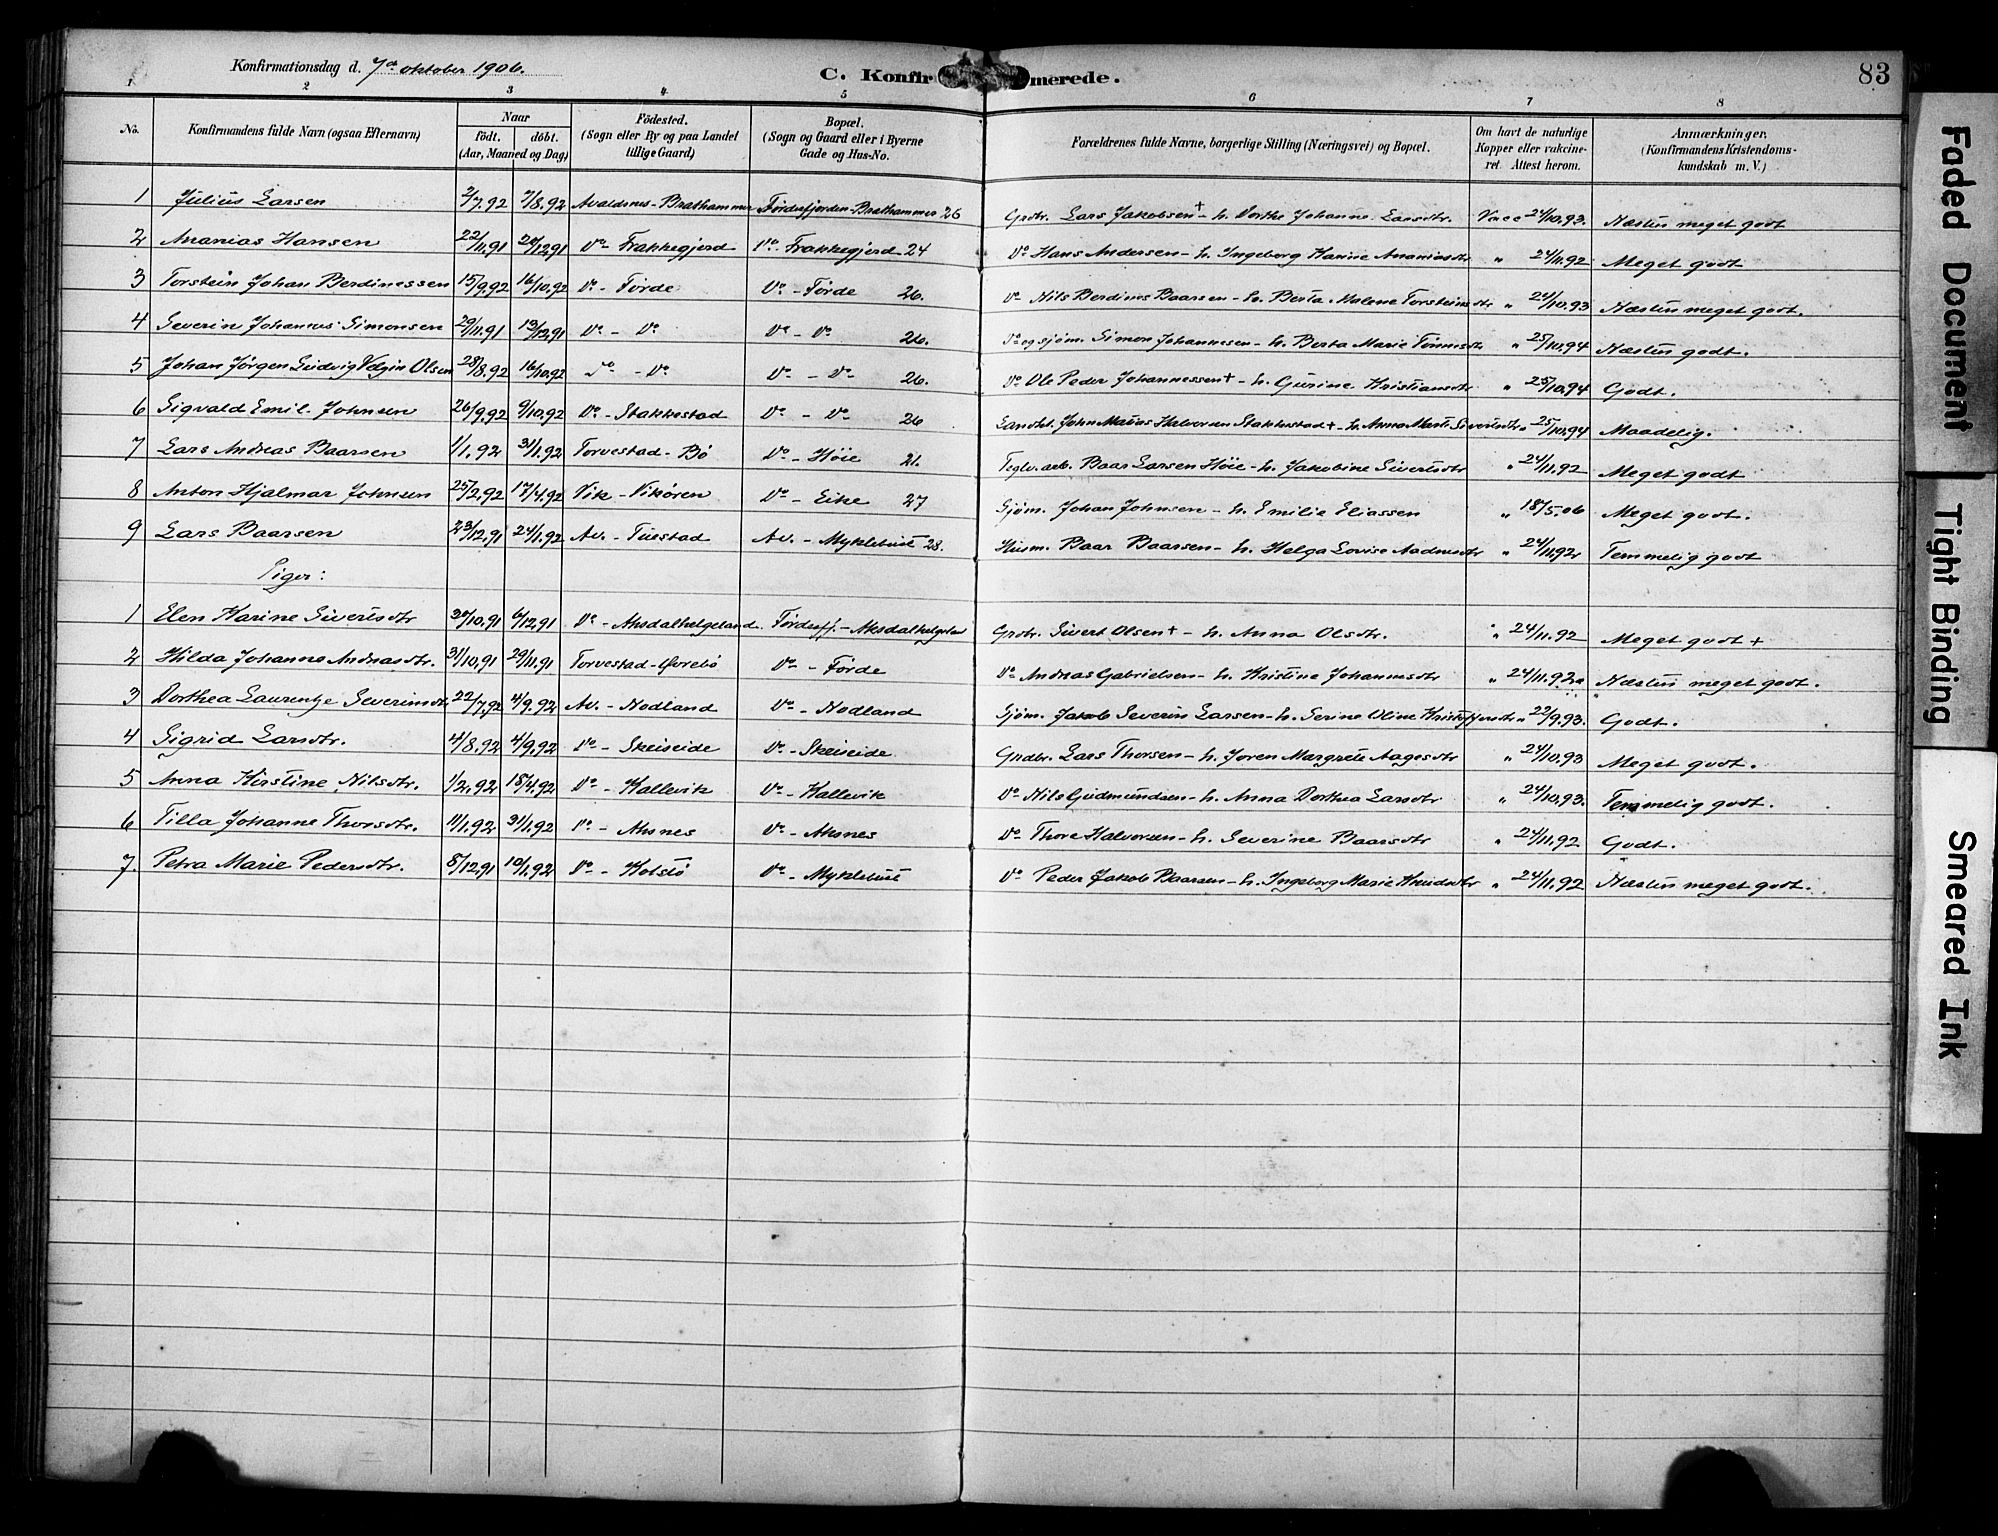 Konfirmationsdag d. 7de oktober 1906.
C. Konfirmerede.
83
1 2 3 4 5 6 7 8
No.
Konfirmandens fulde Navn (ogsaa Efternavn)
Naar
födt. döbt.
(Aar, Maaned og Dag)
Födested.
(Sogn eller By og paa Landet
tillige Gaard)
Bopæl.
(Sogn og Gaard eller i Byerne
Gade og Hus-No.
Forældrenes fulde Navne, borgerlige Stilling (Næringsvei) og Bopæl.
Om havt de naturlige
Kopper eller vakcine-
ret. Attest herom.
Anmærkninger.
(Konfirmandens Kristendoms-
kundskab m. V.)
1 Julius Larsen 2/7.92 7/8.92 Avaldsnes - Brathammer Førdesfjorden - Brathammer 26 Grdbr. Lars Jakobsen + - h. Dorthe Johanne Larsdtr. Vacc 24/10.93. Næsten meget godt
2 Ananias Hansen 22/11.91 26/12.91 Do - Frakkegjerd Do. Frakkegjerd 24 Do Hans Andersen - h. Ingeborg Karine Ananiasdtr " 24/11.92 Meget godt
3 Torstein Johan Berdinessen 15/9.92 16/10.92 Do - Førde Do - Førde 26. Do Nils Berdines Baarsen - h. Berta Malene Torsteinsdtr " 24/10.93 Næsten meget godt.
4 Severin Johannes Simonsen 29/11.91 13/12.91 Do - Do Do - Do 26. Do og sjøm. Simon Johannesen - h. Berta Marie Tønnesdtr " 25/10.94 Næsten godt.
5 Johan Jørgen Ludvig Olsen 28/8.92 16/10.92 Do - Do Do - Do 26. Do Ole Peder Johannessen + - h. Gurine Kristiansdtr " 25/10.94 Godt.
6 Sigvald Emil Johnsen 26/9.92 9/10.92 Do - Stakkestad Do - Do 26 John Halvorsen Stakkestad + - h. Anna Marte Sivertsdtr " 25/10.94 Maadelig.
7 Lars Andreas Baarsen 1/1.92 31/1.92 Torvestad - Bø Do - Høie 21. Teglv. arb. Baar Larsen Høie - h. Jakobine Sivertsdtr " 24/11.92 Meget godt
8 Anton Hjalmar Johnsen 25/2.92 17/4.92 Vik - Vikøren Do - Eike 27 Sjøm. Johan Johnsen - h. Emilie Eliassen " 18/5.06 Meget godt.
9 Lars Baarsen 23/12.91 24/1.92 Av. - Tuestad Av. - Myklebust 28. Husm. Baar Baarsen - h. Helga Lovise Aadnesdtr " 24/11.92 Temmelig godt
Piger:
1 Elen Karine Sivertsdtr 30/10.91 6/12.91 Do - Aksdalhelgeland Førdesfj. - Aksdalhelgeland Grdbr. Sivert Olsen + - h. Anna Olsdtr. " 24/11.92 Meget godt +
2 Hilda Johanne Andreasdtr. 31/10.91 29/11.91 Torvestad - Øvrebø Do - Førde Do Andreas Gabrielsen - h. Kristine Johannesdtr " 24/11.92 Næsten meget godt.
3 Dorthea Laurentse Severinsdtr 22/7.92 4/9.92 Av. - Nodland Do - Nodland Sjøm. Jakob Severin Larsen - h. Serine Oline Kristofersdtr " 22/9.93. Godt.
4 Sigrid Larsdtr. 4/8.92 4/9.92 Do - Skeiseide Do - Skeiseide Grdbr. Lars Thorsen - h. Joren Margrete Aagesdtr " 24/10.93 Meget godt.
5 Anna Kirstine Nilsdtr. 1/2.92 18/4.92 Do - Hallevik Do - Hallevik Do Nils Gudmundsen - h. Anna Dorthea Larsdtr " 24/10.93. Temmelig godt.
6 Tilla Johanne Thorsdtr. 11/1.92 31/1.92 Do - Aksnes Do - Aksnes Do Thore Halvorsen - h. Severine Baarsdtr " 24/11.92 Godt.
7. Petra Marie Pedersdtr. 8/12.91 10/1.92 Do - Kolstø Do - Myklebust Do Peder Jakob Baarsen - h. Ingeborg Marie Knudsdtr " 24/11.92 Næsten meget godt.
Faded Document
Tight Binding
Smeared Ink